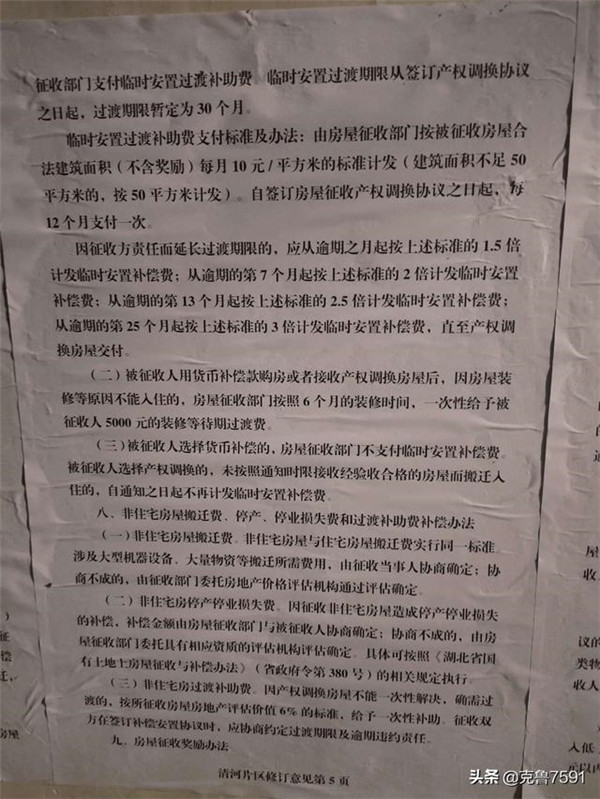 征收部门支付临时安置过渡补助费。临时安置过渡期限从签订产权调换协议
之日起，过渡期限暂定为30个月。
临时安置过渡补助费支付标准及办法：由房屋征收部门按被征收房屋合
法建筑面积（不含奖励）每月10元/平方米的标准计发（建筑面积不足50
平方米的，按50平方米计发）。自签订房屋征收产权调换协议之日起，每
12个月支付一次。
因征收方责任而延长过渡期限的，应从逾期之月起按上述标准的1.5倍
计发临时安置补偿费；从逾期的第7个月起按上述标准的2倍计发临时安置
补偿费；从逾期的第13个月起按上述标准的2.5倍计发临时安置补偿费；
从逾期的第25个月起按上述标准的3倍计发临时安置补偿费，直至产权调
换房屋交付。
（二）被征收人用货币补偿款购房或者接收产权调换房屋后，因房屋装
修等原因不能入住的，房屋征收部门按照6个月的装修时间，一次性给予被
征收人5000元的装修等待期过渡费。
（三）被征收人选择货币补偿的，房屋征收部门不支付临时安置补偿费。
被征收人选择产权调换的，未按照通知时限接收经验收合格的房屋而搬迁入
住的，自通知之日起不再计发临时安置补偿费。
八、非住宅房屋搬迁费、停产、停业损失费和过渡补助费补偿办法
（一）非住宅房屋搬迁费。非住宅房屋与住宅房屋搬迁费实行同一标准。
涉及大型机器设备、大量物资等搬迁所需费用，由征收当事人协商确定；协
商不成的，由征收部门委托房地产价格评估机构通过评估确定。
（二）非住宅房停产停业损失费。因征收非住宅房屋造成停产停业损失
的补偿，补偿金额由房屋征收部门与被征收人协商确定；协商不成的，由房
屋征收部门委托具有相应资质的评估机构评估确定。具体可按照《湖北省国
有土地上房屋征收与补偿办法》（省政府令第380号）的相关规定执行。
（三）非住宅房过渡补助费。因产权调换房屋不能一次性解决，确需过
渡的，按所征收房屋房地产评估价值6%的标准，给予一次性补助。征收双
方在签订补偿安置协议时，应协商约定过渡期限及逾期违约责任。
九、房屋征收奖励办法
清河片区修订意见第5页
头条 @克鲁7591